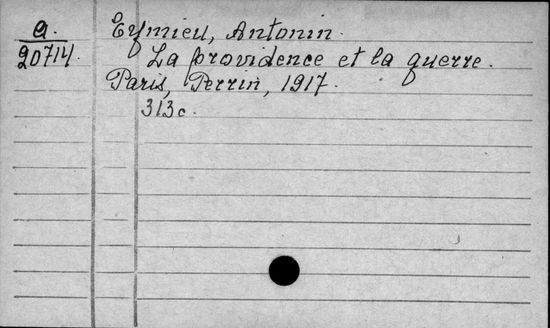 a.
20714.
Eymieu, Antonin.
La providence et la guerre.
Paris, Perrin, 1917.
313c.